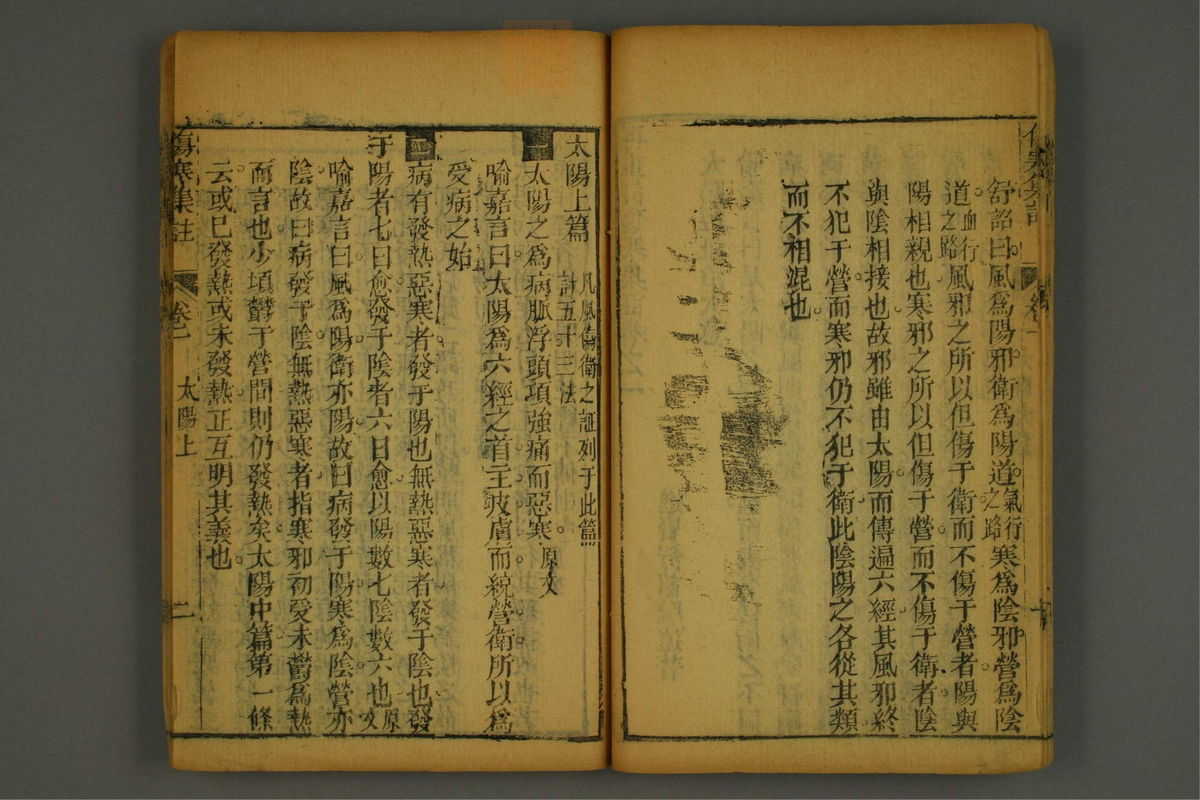 舒詔曰風爲陽邪衛爲陽道氣行之路寒爲陰邪營爲陰
道血行之路風邪之所以但傷于衛而不傷于營者陽與
陽相親也寒邪之所以但傷于營而不傷于衛者陰
與陰相接也故邪雖由太陽而傳遍六經其風邪終
不犯于營而寒邪仍不犯于衛此陰陽之各從其類
而不相混也
太陽上篇 凡風傷衛之証列于此篇
計五十三法
一 太陽之爲病脈浮頭項強痛而惡寒 原文
喻嘉言曰太陽爲六經之首主皮膚而統營衛所以爲
受病之始
二 病有發熱惡寒者發于陽也無熱惡寒者發于陰也發
于陽者七日愈發于陰者六日愈以陽數七陰數六也 原文
喻嘉言曰風爲陽衛亦陽故曰病發于陽寒爲陰營亦
陰故曰病發于陰無熱惡寒者指寒邪初受未鬱爲熱
而言也少頃鬱于營間則仍發熱矣太陽中篇第一條
云或已發熱或未發熱正互明其義也
傷寒集註 卷一 太陽上 二